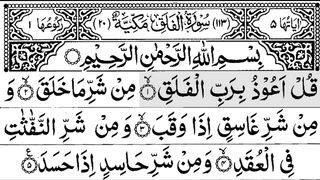 اٰیَاتُهَا ۵ (۱۱۳) سُوْرَةُ الْفَلَقِ مَكِّيَّةٌ (۲۰) رُكُوْعُهَا ۱
بِسْمِ اللّٰهِ الرَّحْمٰنِ الرَّحِيْمِ
قُلْ اَعُوْذُ بِرَبِّ الْفَلَقِ ۱ مِنْ شَرِّ مَا خَلَقَ ۲ وَ
مِنْ شَرِّ غَاسِقٍ اِذَا وَقَبَ ۳ وَ مِنْ شَرِّ النَّفّٰثٰتِ
فِی الْعُقَدِ ۴ وَ مِنْ شَرِّ حَاسِدٍ اِذَا حَسَدَ ۵